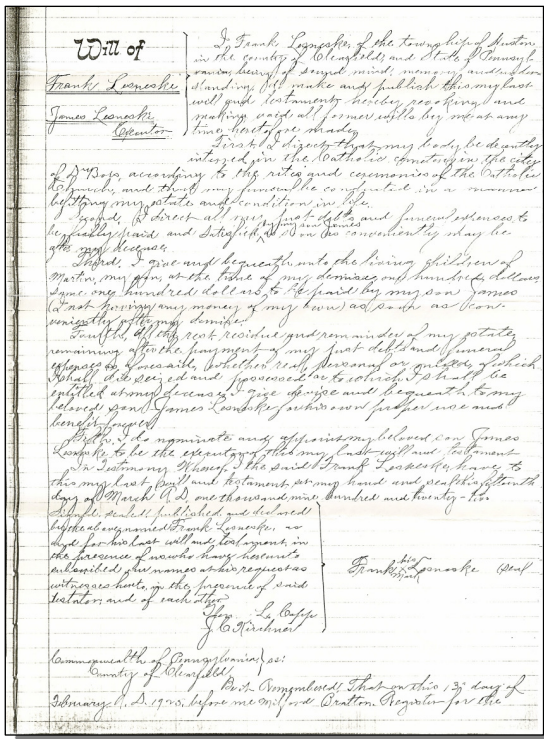 Will of
Frank Lesneske
James Lesneske
Executor
I, Frank Lesneske, of the township of Huston
in the county of Clearfield and State of Pennsyl-
vania, being of sound mind, memory and under-
standing, do make and publish this my last
will and testament, hereby revoking and
making void all former wills by me at any
time heretofore made.
First, I direct that my body be decently
interred in the Catholic cemetery in the city
of Du Bois, according to the rites and ceremonies of the Catholic
Church, and that my funeral be conducted in a manner
befitting my estate and condition in life.
Second, I direct all my just debts and funeral expenses, to
be fully paid and satisfied, by my son James as soon as conveniently may be
after my decease.
Third, I give and bequeath unto the living children of
Martin, my son, at the time of my demise, one hundred dollars,
same one hundred dollars to be paid by my son James
(I not having any money of my own) as soon as con-
veniently after my demise.
Fourth, All the rest, residue and remainder of my estate,
remaining after the payment of my just debts and funeral
expenses as aforesaid, whether real, personal or mixed, of which
I shall die seized and possessed or to which I shall be
entitled at my decease, I give devise and bequeath to my
beloved son James Lesneske for his own proper use and
benefit forever.
Fifth, I do nominate and appoint my beloved son James
Lesneske to be the executor of this my last will and testament
In Testimony Whereof, I the said Frank Lesneske, have to
this my last will and testament set my hand and seal this fifteenth
day of March A.D. one thousand nine hundred and twenty-two
Signed, sealed, published and declared
by the above named Frank Lesneske, as
and for his last will and testament, in
the presence of us who have hereunto
subscribed our names at his request as
witnesses hereto, in the presence of said
testator, and of each other.
L. Capp
J. C. Kirchner
Frank his X mark Lesneske Seal
Commonwealth of Pennsylvania } ss:
County of Clearfield
Be it Remembered, That on this 13" day of
February A.D. 1923, before me Milford Pratton Register for the